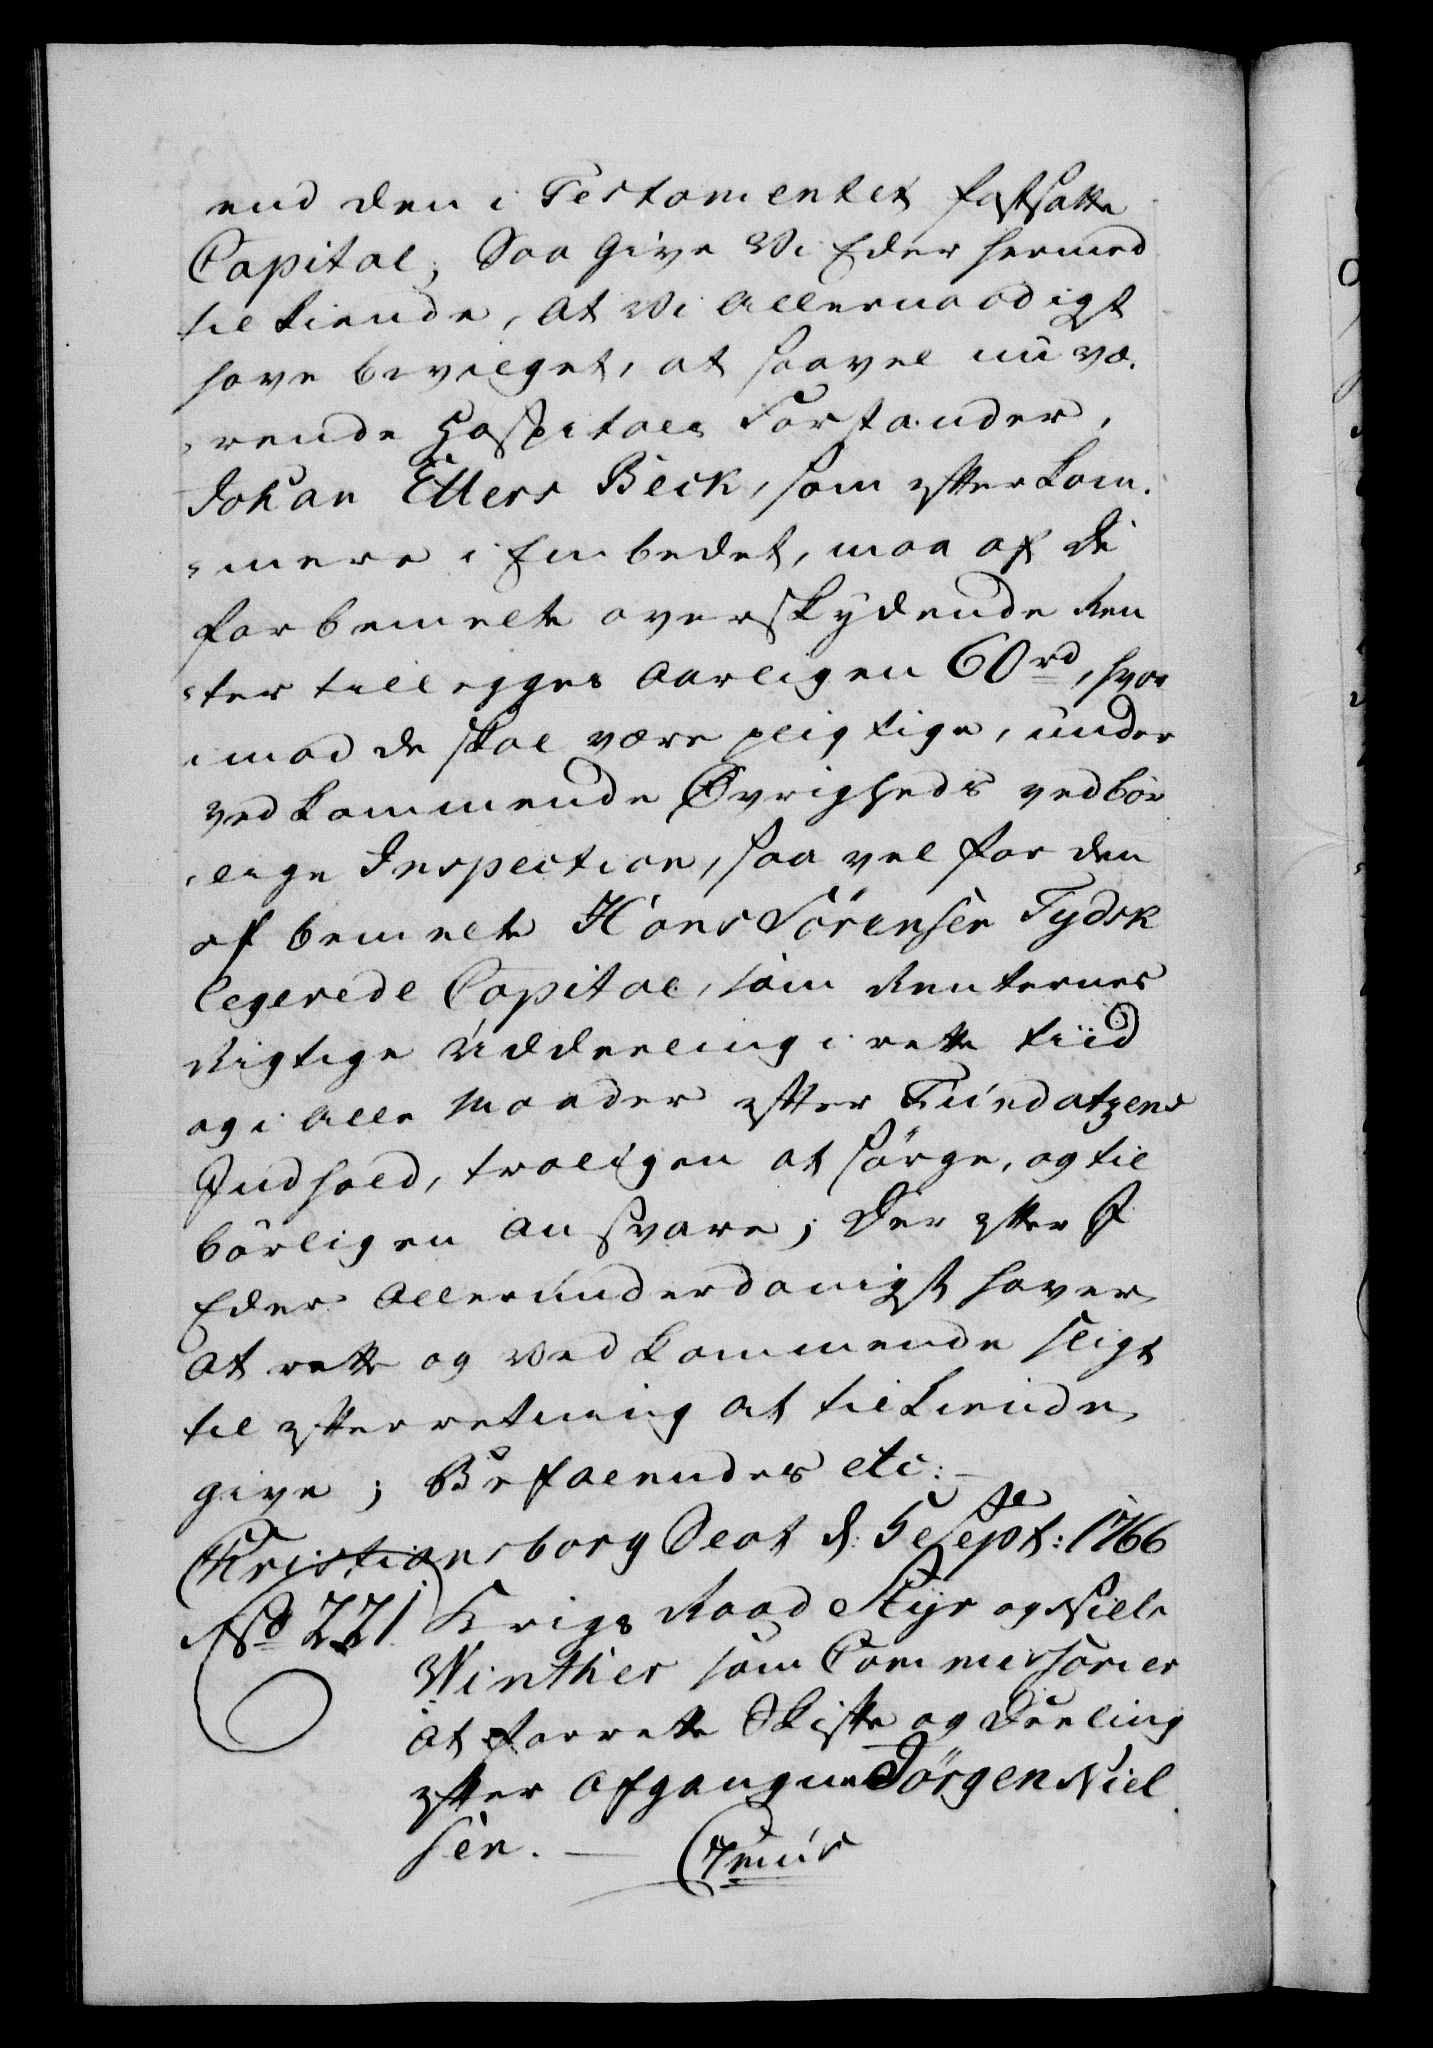 end den i Testamentet fastsatte
Capital; Saa give Vi Eder hermed
til kiende, at Vi Allernaadigst
have bevilget, at saavel nu væ-
rende Hospitals Forstander,
Johan Ellers Beck, som efterkom-
mere i Embedet, maa af de
forbemelte overskydende Ren
ter tillegges Aarligen 60 rd, hvor
imod de skal være pligtige, under
vedkommende Øvrigheds vedbör
lige Inspection, saa vel for den
af bemelte Hans Sörensen Tydsk
legerede Capital, som Renternes
Rigtige Uddeeling i rette tiid
og i alle Maader efter Fundatzens
Indhold, troeligen at sörge, og til
börligen ansvare; Der efter I
Eder Allerunderdanigst haver
at rette og vedkommende sligt
til efterretning at tilkiende
give; Befalendes etc:
Christiansborg Slot d: 5e Sept: 1766
No 221. Krigs Raad Styr og Niels
Winther som Commissarier
at forrette Skifte og Deeling
efter afgangne Jörgen Niel
sen. —